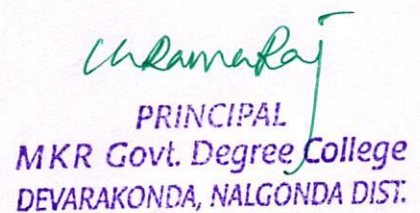 PRINCIPAL
MKR Govt. Degree College
DEVARAKONDA, NALGONDA DIST.